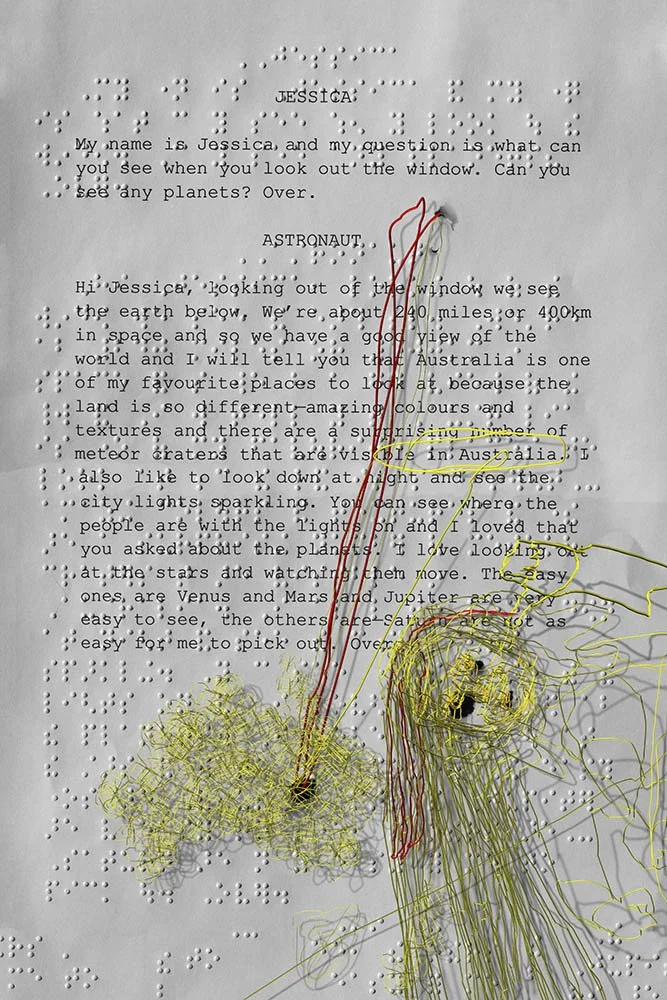 JESSICA
My name is Jessica and my question is what can
you see when you look out the window. Can you
see any planets? Over.
ASTRONAUT
Hi Jessica, looking out of the window we see
the earth below. We're about 240 miles or 400km
in space and so we have a good view of the
world and I will tell you that Australia is one
of my favourite places to look at because the
land is so different—amazing colours and
textures and there are a surprising number of
meteor craters that are visible in Australia. I
also like to look down at night and see the
city lights sparkling. You can see where the
people are with the lights on and I loved that
you asked about the planets. I love looking
at the stars and watching them move. The easy
ones are Venus and Mars and Jupiter are very
easy to see, the others are—Saturn are not as
easy for me to pick out. Over